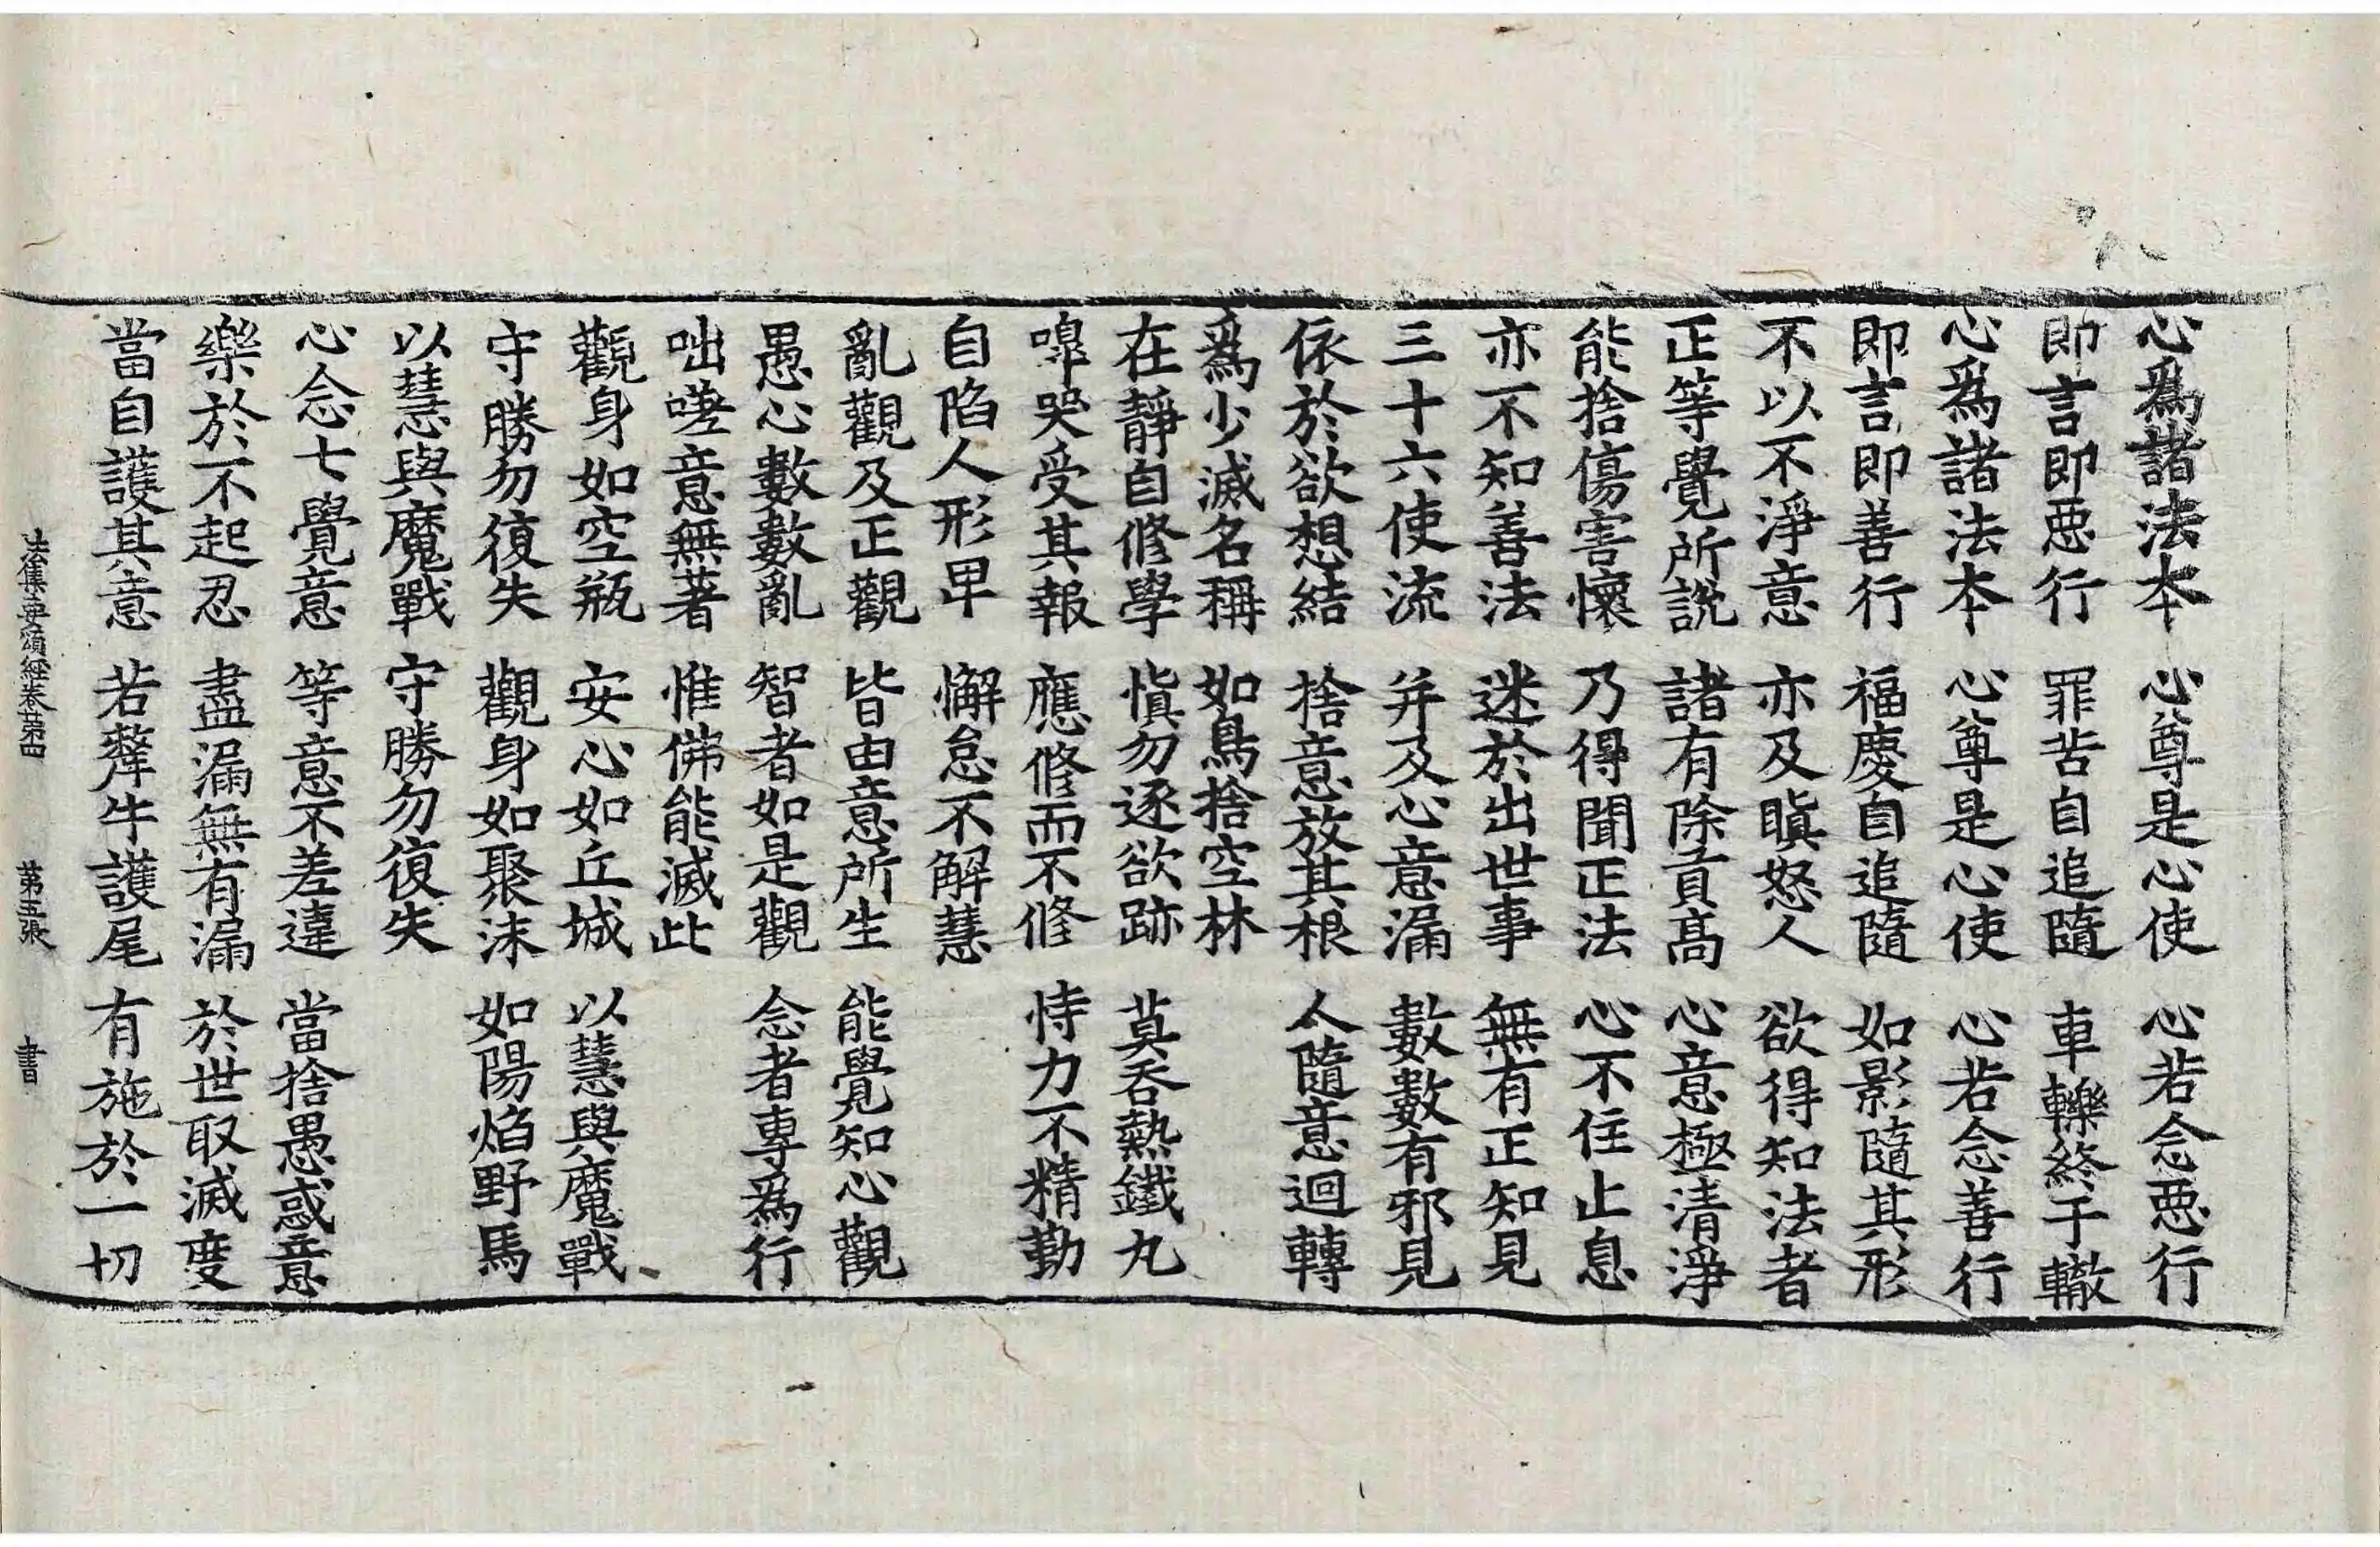 心爲諸法本 心尊是心使 心若念惡行
即言即惡行 罪苦自追隨 車轢終于轍
心爲諸法本 心尊是心使 心若念善行
即言即善行 福慶自追隨 如影隨其形
不以不淨意 亦及瞋怒人 欲得知法者
正等覺所說 諸有除貢高 心意極清淨
能捨傷害懷 乃得聞正法 心不住止息
亦不知善法 迷於出世事 無有正知見
三十六使流 并及心意漏 數數有邪見
依於欲想結 捨意放其根 人隨意迴轉
爲少滅名稱 如鳥捨空林
在靜自修學 慎勿逐欲跡 莫吞熱鐵丸
嘷哭受其報 應修而不修 恃力不精勤
自陷人形卑 懈怠不解慧
亂觀及正觀 皆由意所生 能覺知心觀
愚心數數亂 智者如是觀 念者專爲行
咄嗟意無著 惟佛能滅此
觀身如空瓶 安心如丘城 以慧與魔戰
守勝勿復失 觀身如聚沫 如陽焰野馬
以慧與魔戰 守勝勿復失
心念七覺意 等意不差違 當捨愚惑意
樂於不起忍 盡漏無有漏 於世取滅度
當自護其意 若犛牛護尾 有施於一切
法集要頌經卷第四 第五張 書